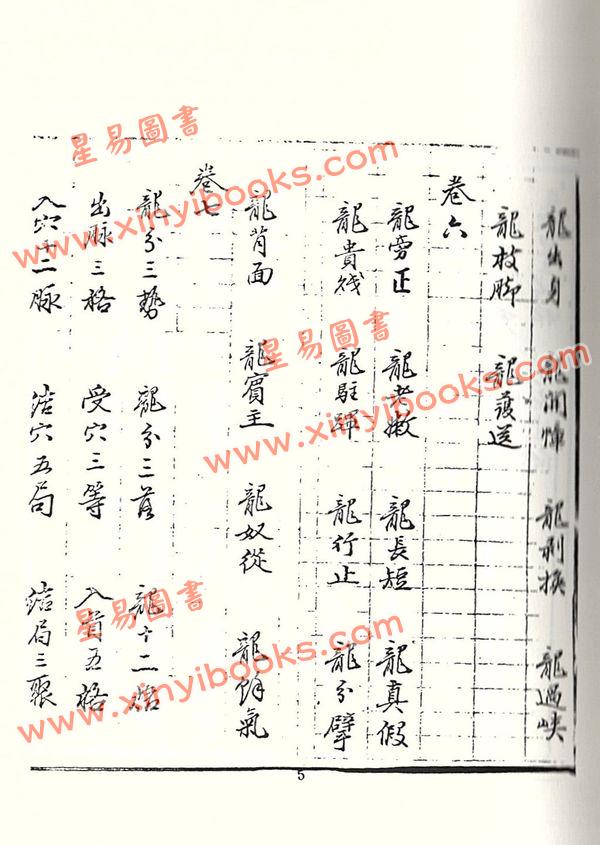 龍出身　龍開㠇　龍剝換　龍過峽
龍枝脚　龍護送
卷六
龍旁正　龍老嫩　龍長短　龍真假
龍貴賤　龍駐蹕　龍行止　龍分擘
龍背面　龍賓主　龍奴從　龍餘氣
卷七
龍分三勢　龍分三落　龍十二格
出脉三格　受穴三等　入首五格
入穴十二脉　結穴五局　結局三聚
5
星易圖書
www.xinyibooks.com
星易圖書
www.xinyibooks.com
星易圖書
www.xinyibooks.com